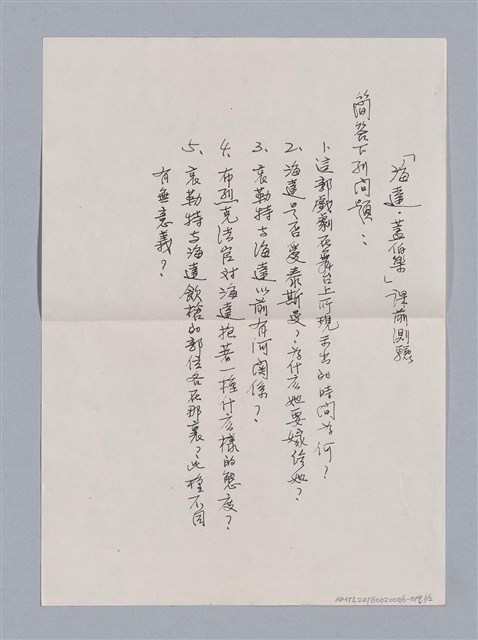 「海達·蓋伯樂」課前測驗
簡答下列問題：
1. 這部戲劇在舞台上所現示出的時間為何？
2. 海達是否愛泰斯曼？為什么她要嫁给她？
3. 衷勒特与海達以前有何関係？
4. 布列克法官对海達抱著一種什么樣的態度？
5. 衷勒特与海達飲槍的部位各在那裏？此種不同
有無意義？